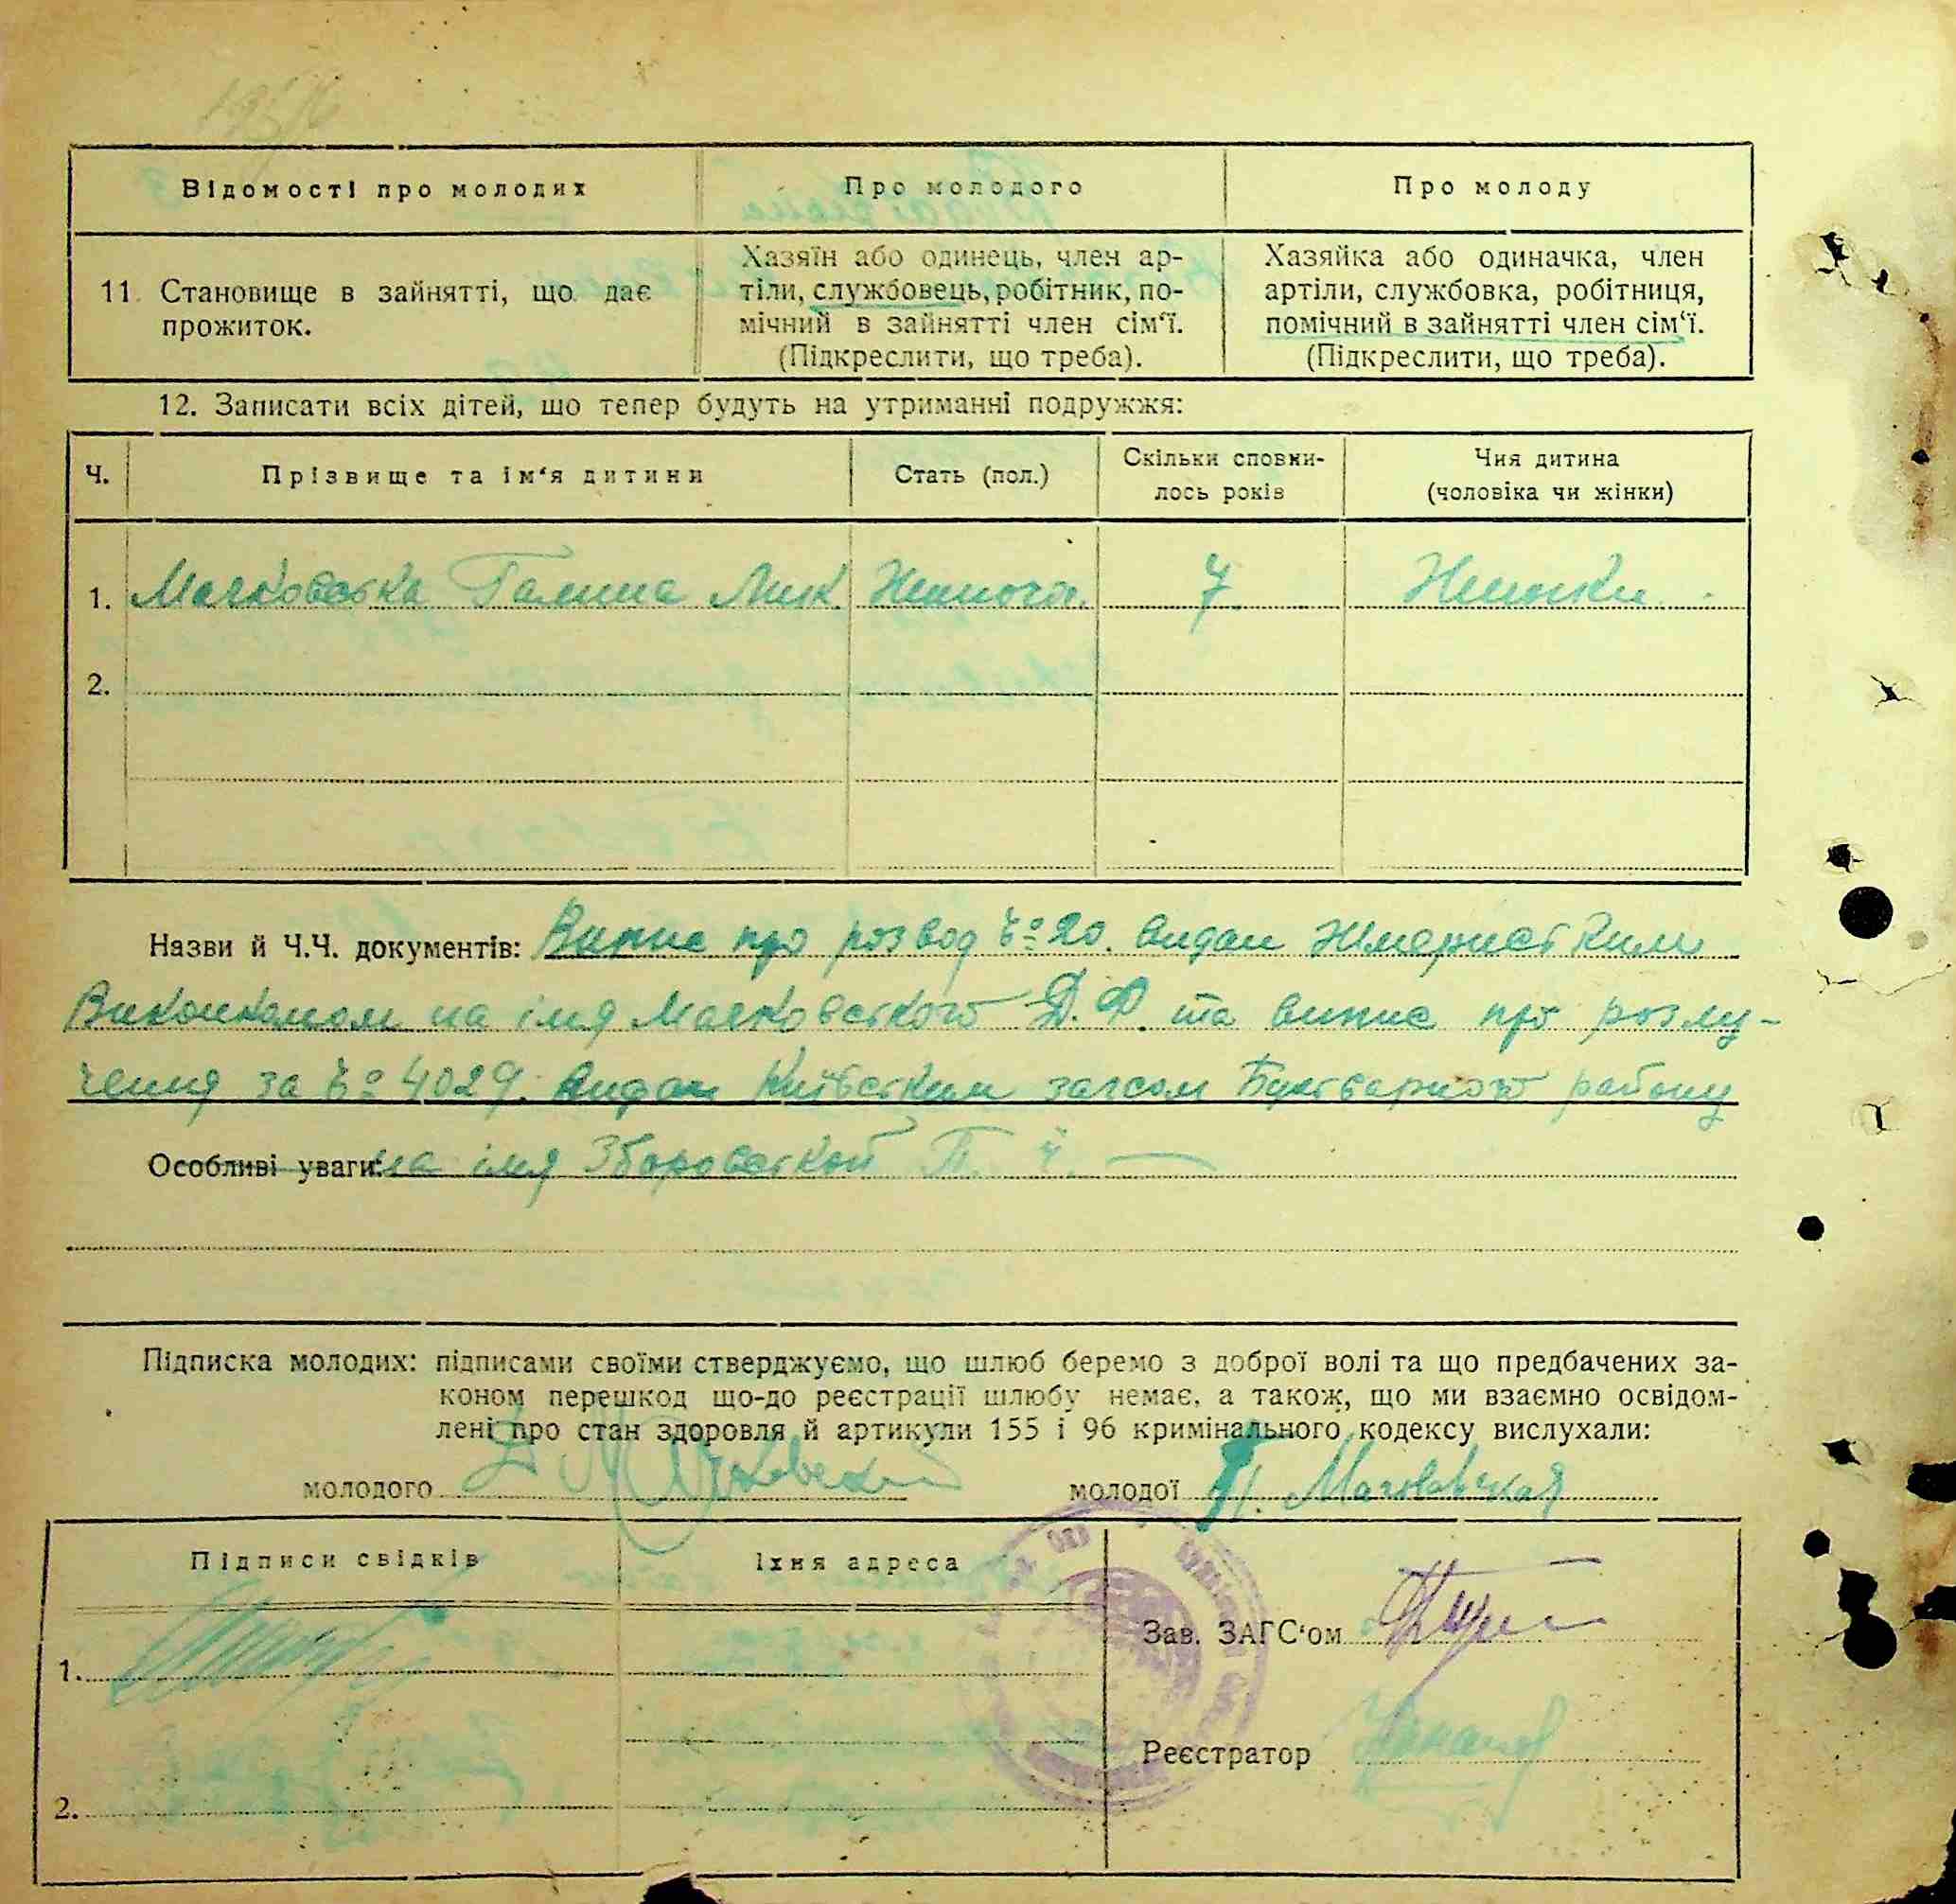 Відомості про молодих
Про молодого
Про молоду
11. Становище в зайнятті, що дає
прожиток.
Хазяїн або одинець, член ар-
тіли, службовець, робітник, по-
мічний в зайнятті член сім'ї.
(Підкреслити, що треба).
Хазяйка або одиначка, член
артіли, службовка, робітниця,
помічний в зайнятті член сім'ї.
(Підкреслити, що треба).
12. Записати всіх дітей, що тепер будуть на утриманні подружжя:
Ч.
Прізвище та ім'я дитини
Стать (пол.)
Скільки сповни-
лось років
Чия дитина
(чоловіка чи жінки)
1. Галина Мик. Жиноча. 7 Жинки
2.
Назви й Ч.Ч. документів: Випис про розвод № 20. видан
Виконкомом на імя Д. Ф. та випис про розлу-
чення за № 4029. видан Київським загсом району
Особливі уваги: на імя Зборовської
Підписка молодих: підписами своїми стверджуємо, що шлюб беремо з доброї волі та що предбачених за-
коном перешкод що-до реєстрації шлюбу немає, а також, що ми взаємно освідом-
лені про стан здоровля й артикули 155 і 96 кримінального кодексу вислухали:
молодого
молодої
Підписи свідків
Їхня адреса
Зав. ЗАГС'ом
1.
Реєстратор
2.